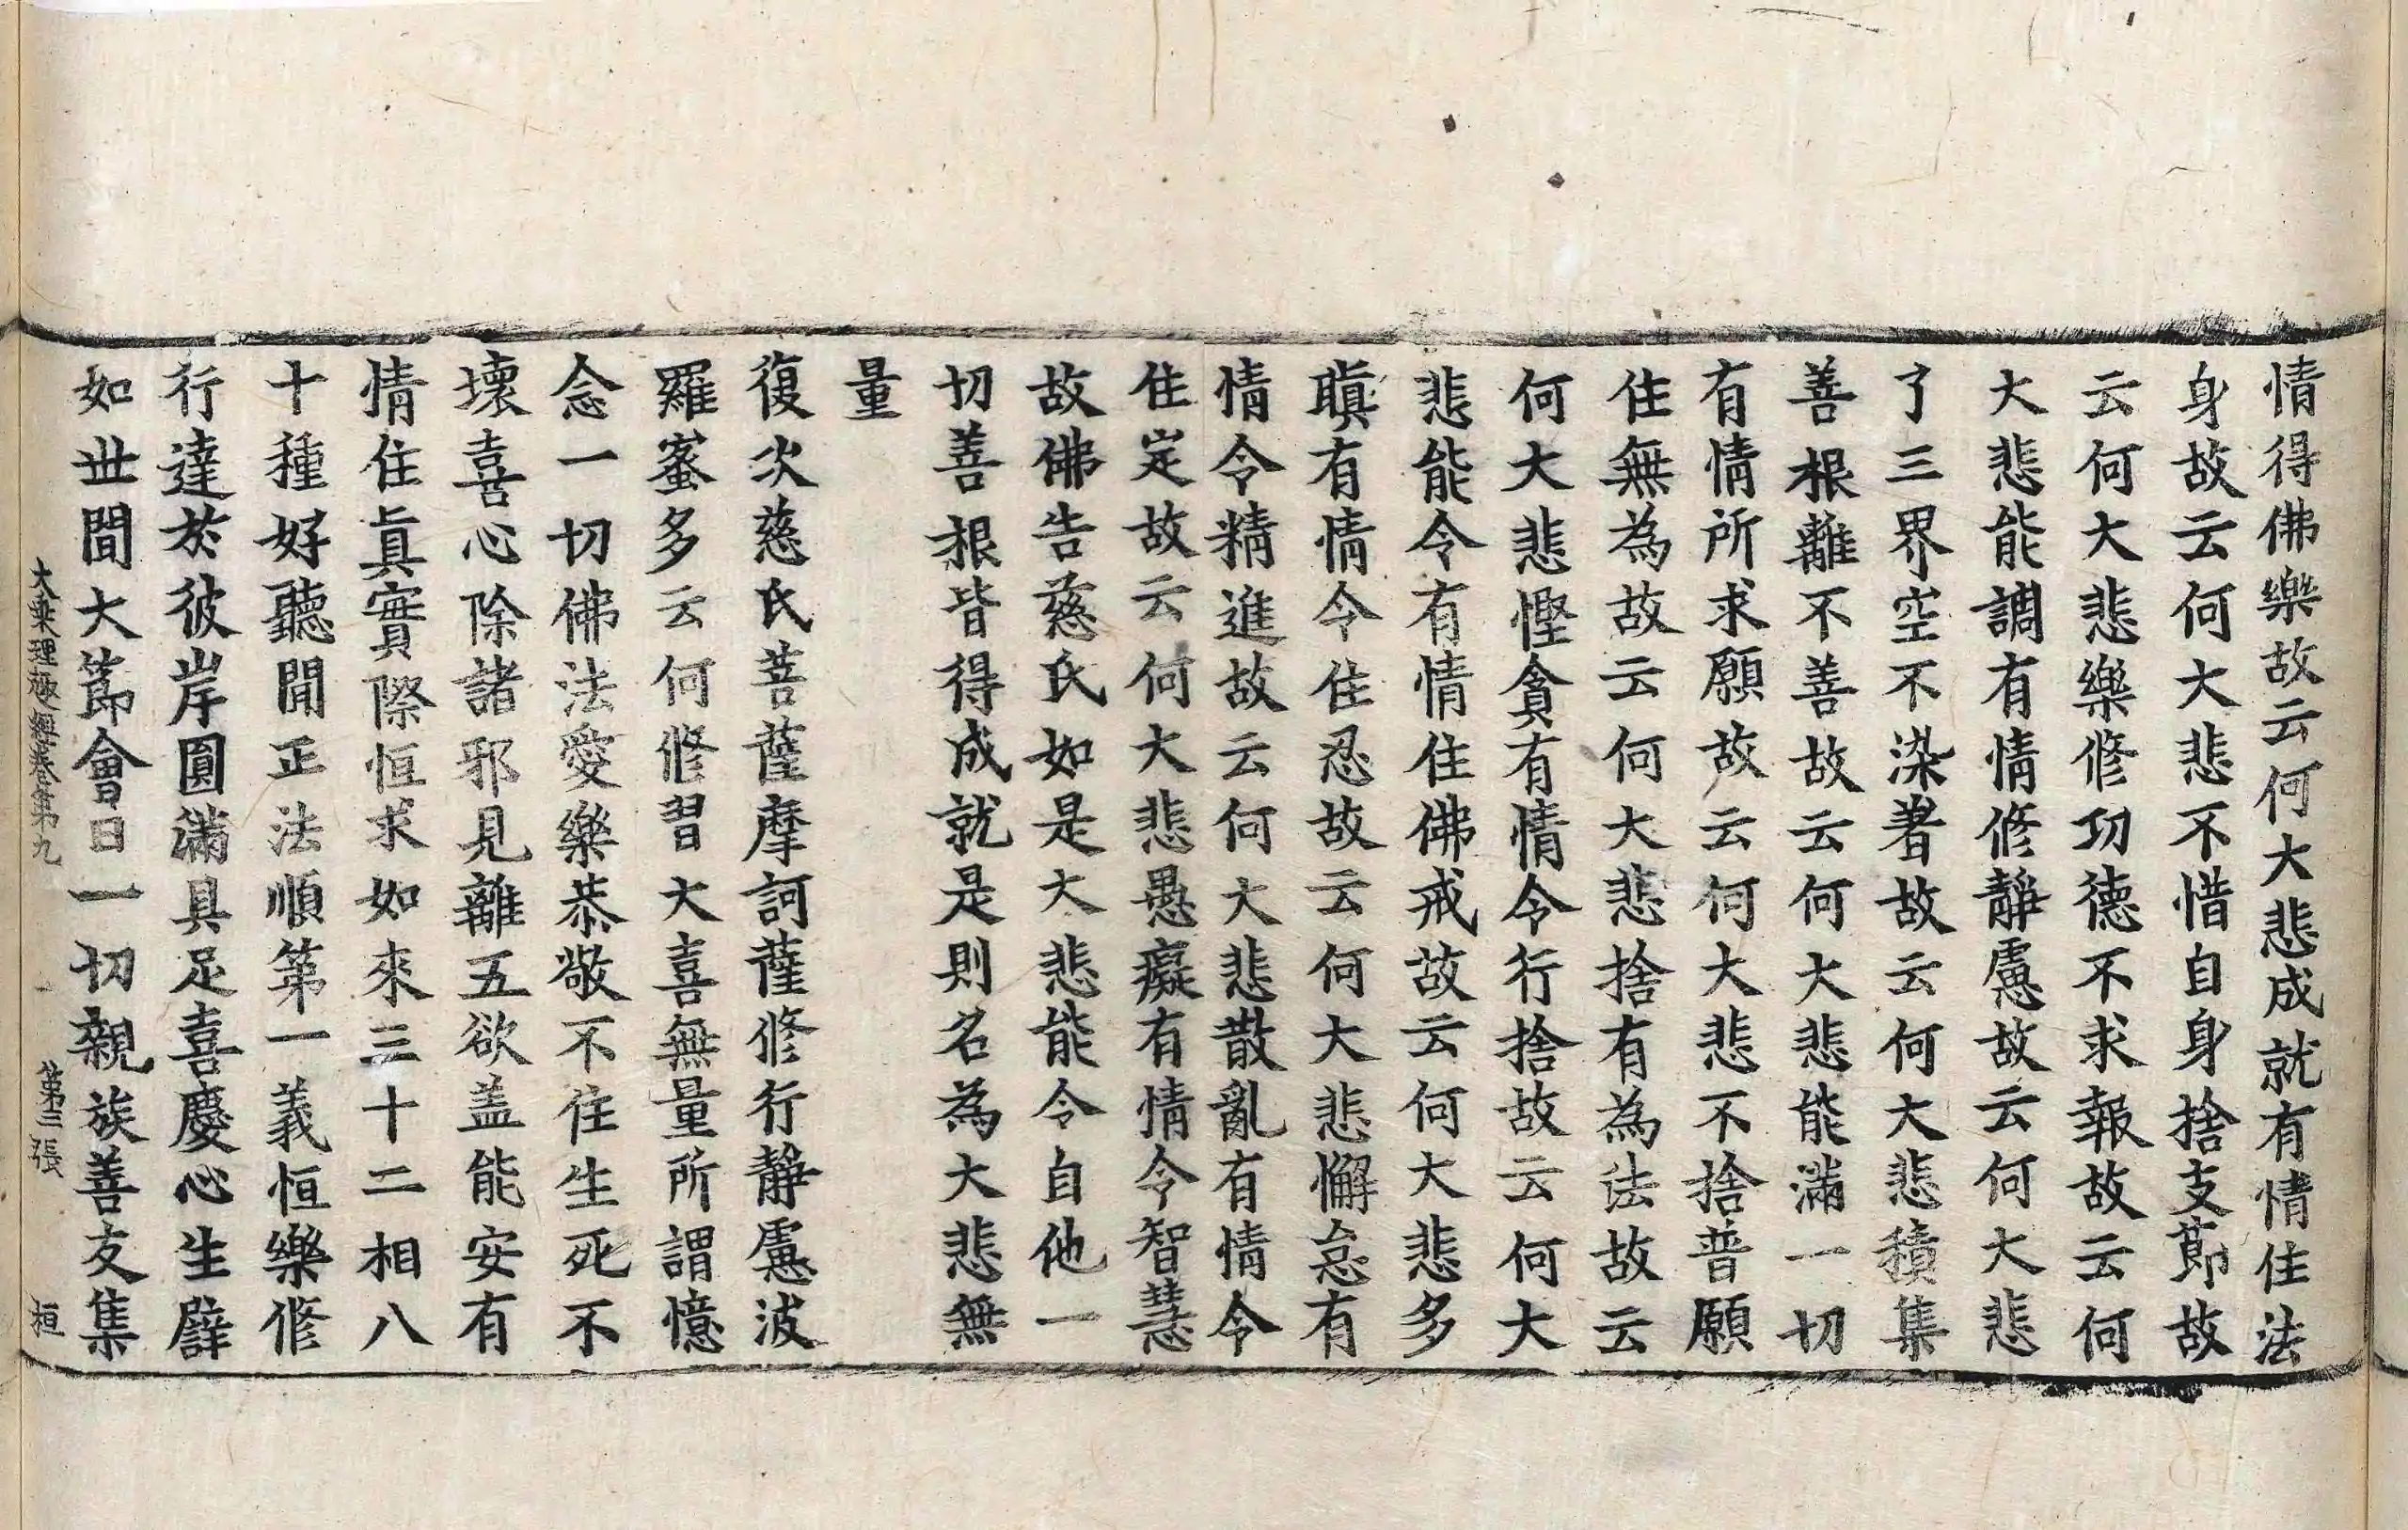 情得佛樂故云何大悲成就有情住法
身故云何大悲不惜自身捨支節故
云何大悲樂修功德不求報故云何
大悲能調有情修靜慮故云何大悲
了三界空不染著故云何大悲積集
善根離不善故云何大悲能滿一切
有情所求願故云何大悲不捨普願
住無為故云何大悲捨有為法故云
何大悲慳貪有情令行捨故云何大
悲能令有情住佛戒故云何大悲多
瞋有情令住忍故云何大悲懈怠有
情令精進故云何大悲散亂有情令
住定故云何大悲愚癡有情令智慧
故佛告慈氏如是大悲能令自他一
切善根皆得成就是則名為大悲無
量
復次慈氏菩薩摩訶薩修行靜慮波
羅蜜多云何修習大喜無量所謂憶
念一切佛法愛樂恭敬不住生死不
壞喜心除諸邪見離五欲盖能安有
情住眞實際恒求如來三十二相八
十種好聽聞正法順第一義恒樂修
行達於彼岸圓滿具足喜慶心生譬
如世間大節會日一切親族善友集
大乘理趣經卷第九 第三張 桓